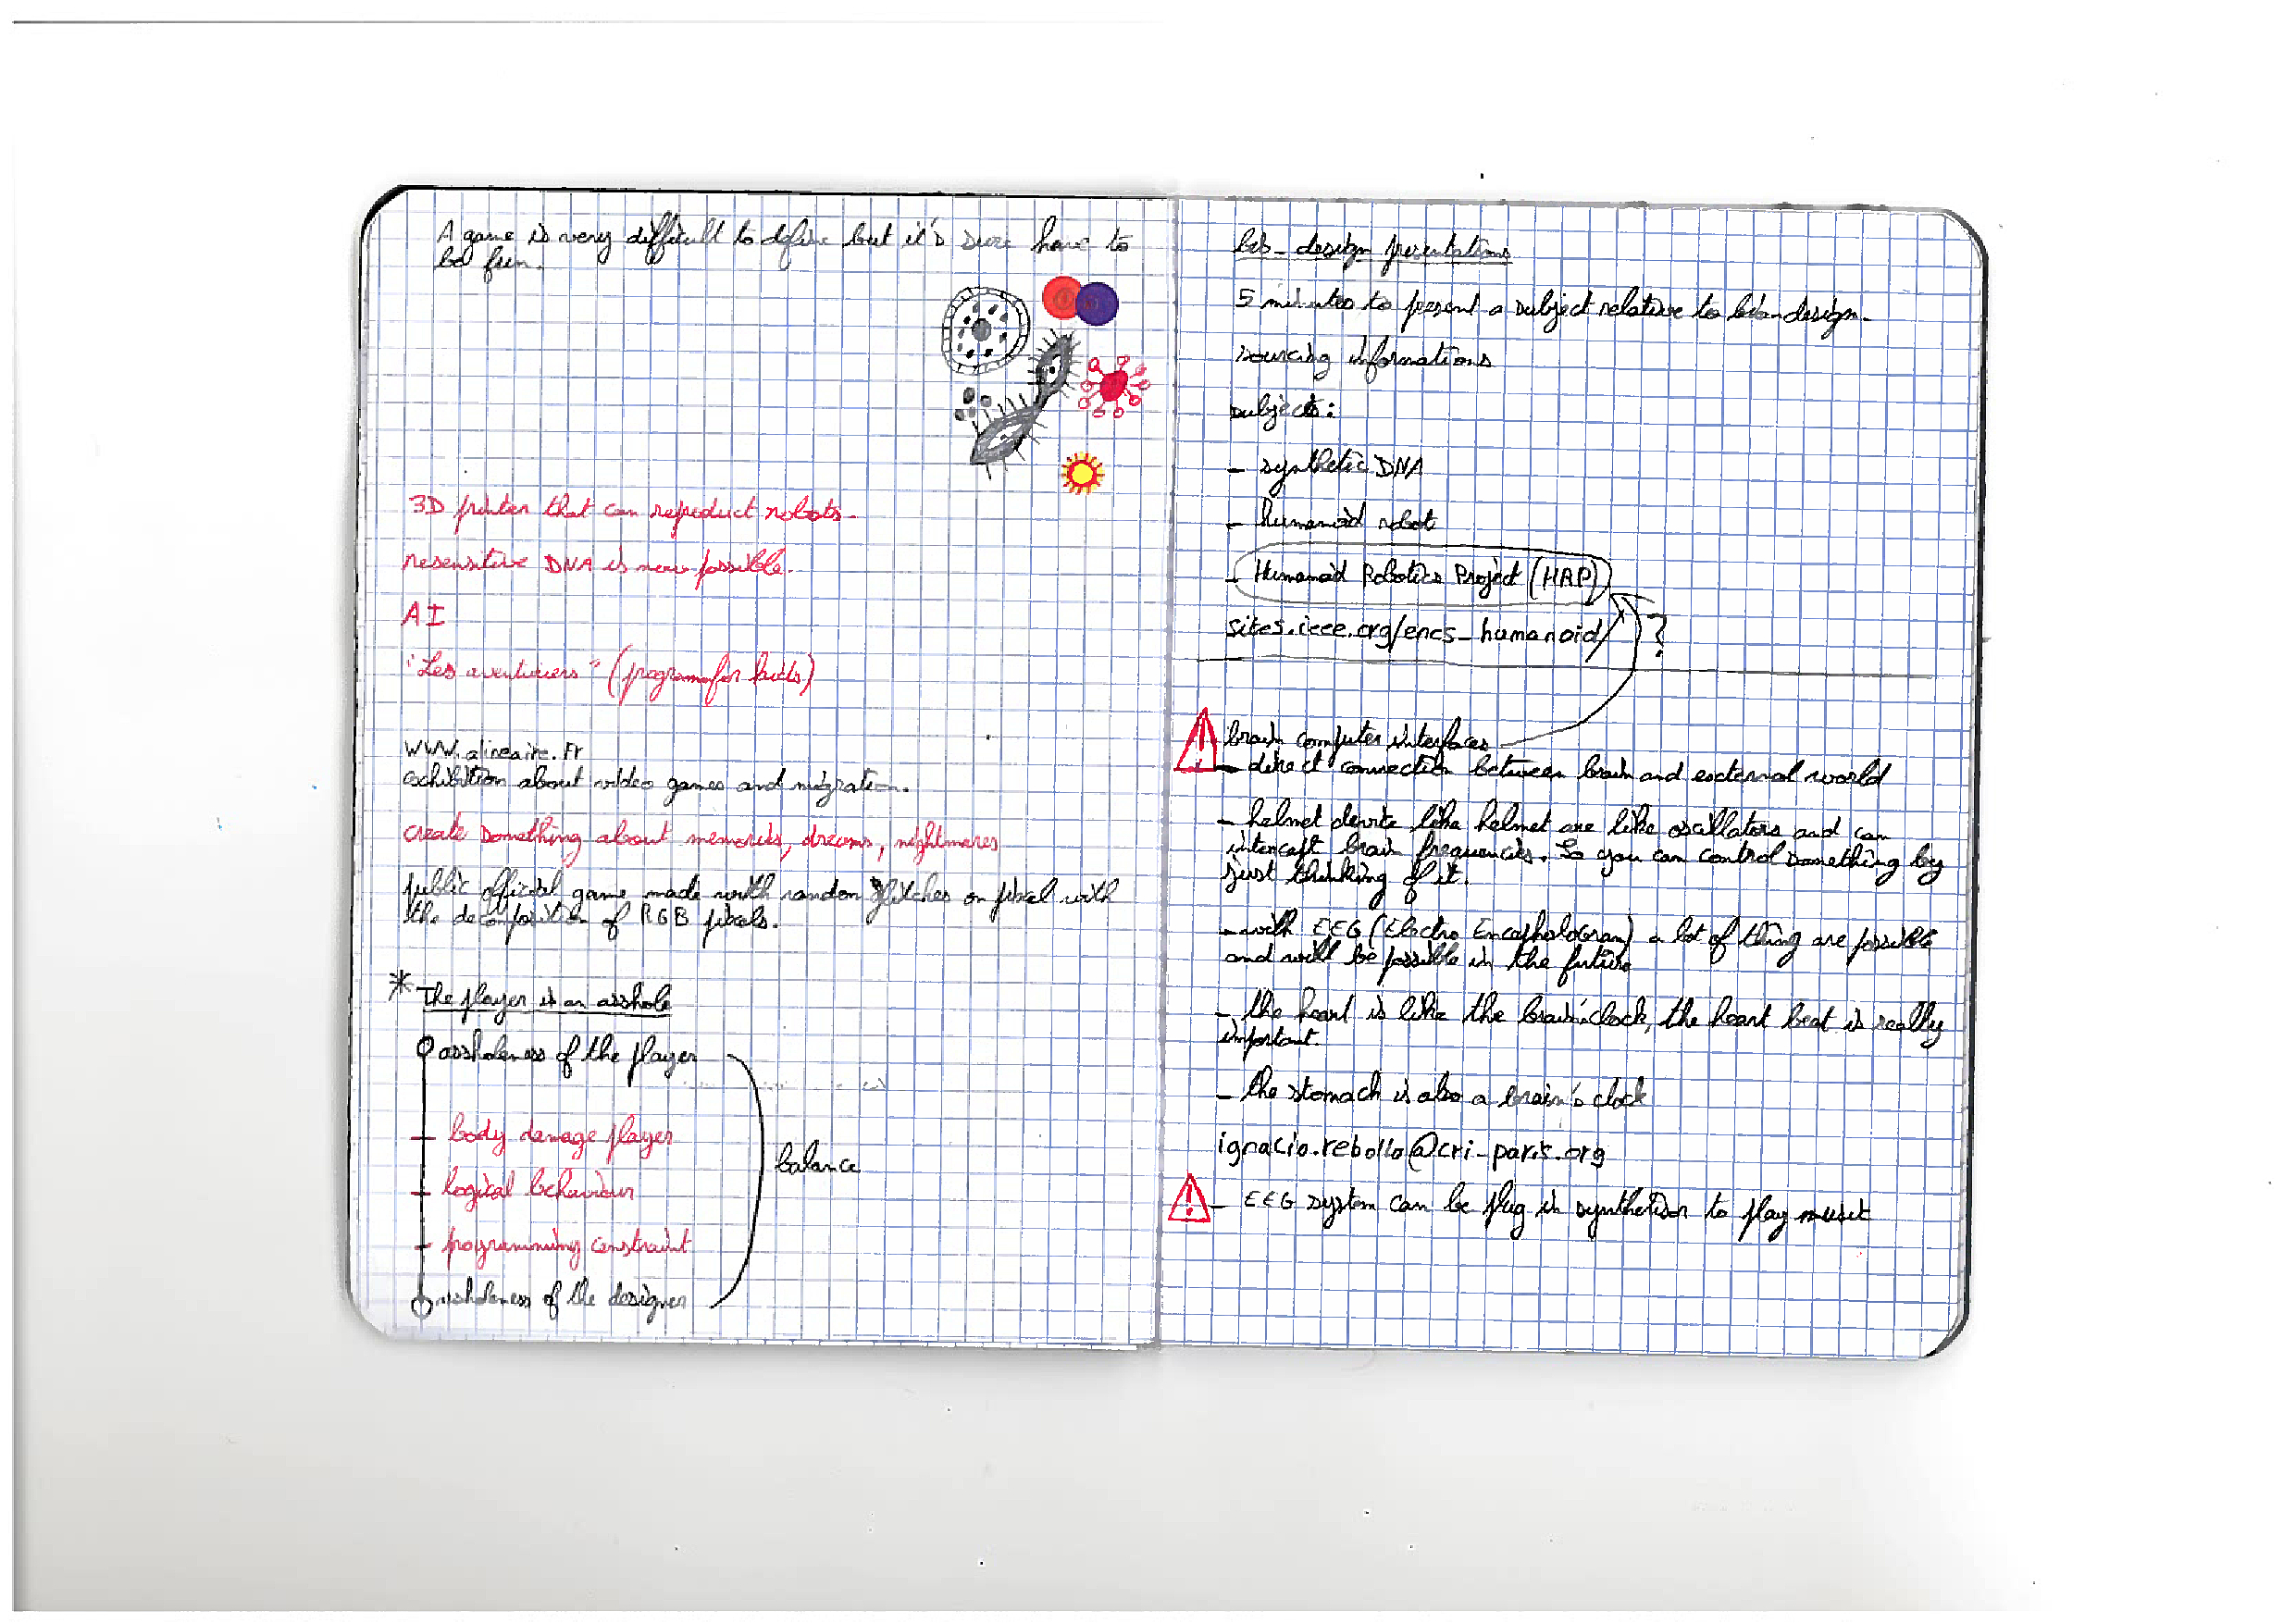 A game is very difficult to define but it's sure have to
be fun.
3D printer that can reproduct robots.
resensitive DNA is now possible.
AI
"Les aventuriers" (program for kids)
www.alineaire.fr
exhibition about video games and migration.
create something about memories, dreams, nightmares
public official game made with random glitches on pixel with
the decomposition of RGB pixels.
* The player is an asshole
assholeness of the player
- body damage player
- logical behaviour
- programming constraint
assholeness of the designer
balance
bio-design presentations
5 minutes to present a subject relative to bio-design.
sourcing informations
subjects:
- synthetic DNA
- humanoid robot
- Humanoid Robotics Project (HRP)
sites.ieee.org/encs-humanoid/ ?
brain computer interfaces
- direct connection between brain and external world
- helmet device like helmet are like oscillators and can
intercept brain frequencies. So you can control something by
just thinking of it.
- with EEG (Electro EncephaloGram) a lot of thing are possible
and will be possible in the future
- the heart is like the brain's clock, the heart beat is really
important.
- the stomach is also a brain's clock
ignacio.rebollo@cri-paris.org
- EEG system can be plug in synthetisor to play music